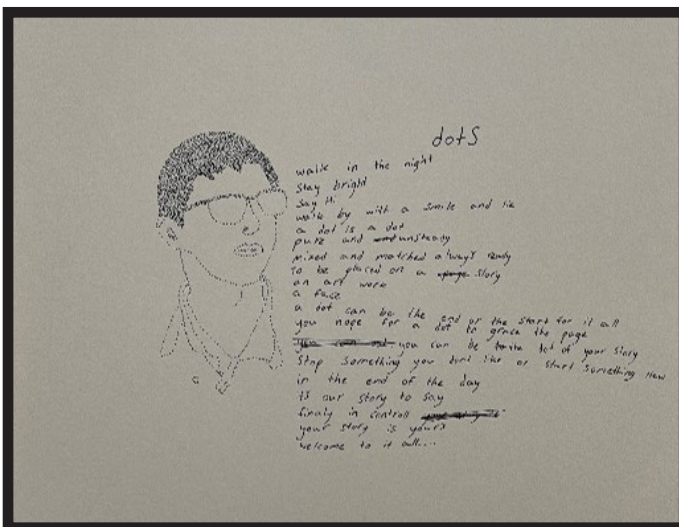 dots
walk in the night
Stay bright
Say Hi
walk by with a smile and lie
a dot is a dot
pure and unsteady
mixed and matched always ready
to be placed on a story
an art work
a face
a dot can be the end or the start for it all
you hope for a dot to grace the page
you can be the dot of your story
Stop Something you dont like or start Something new
in the end of the day
is our story to say
finaly in controll
your story is yours
welcome to it all....